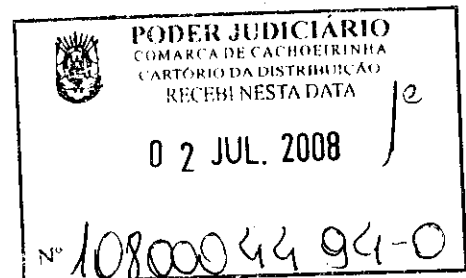 PODER JUDICIÁRIO
COMARCA DE CACHOEIRINHA
CARTÓRIO DA DISTRIBUIÇÃO
RECEBI NESTA DATA
0 2 JUL. 2008
Nº 10800044 94-0